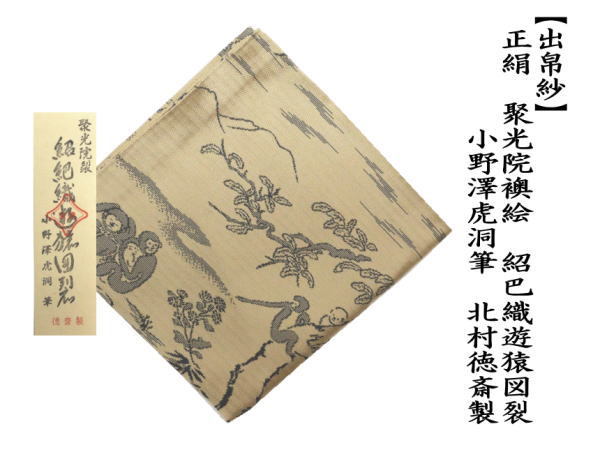 【出帛紗】
正絹　聚光院襖絵　紹巴織遊猿図裂
小野澤虎洞筆　北村徳斎製
聚光院裂
紹紦織遊猿図裂
小野澤虎洞筆
徳斎製